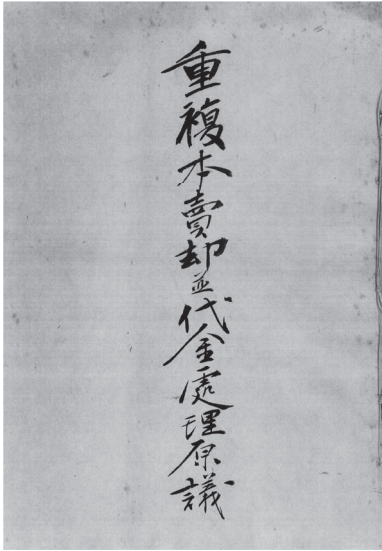 重複本賣却並代金處理原議